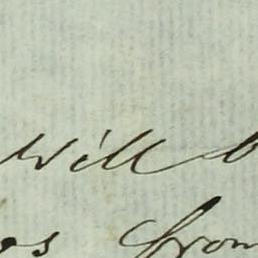 Will b
os from